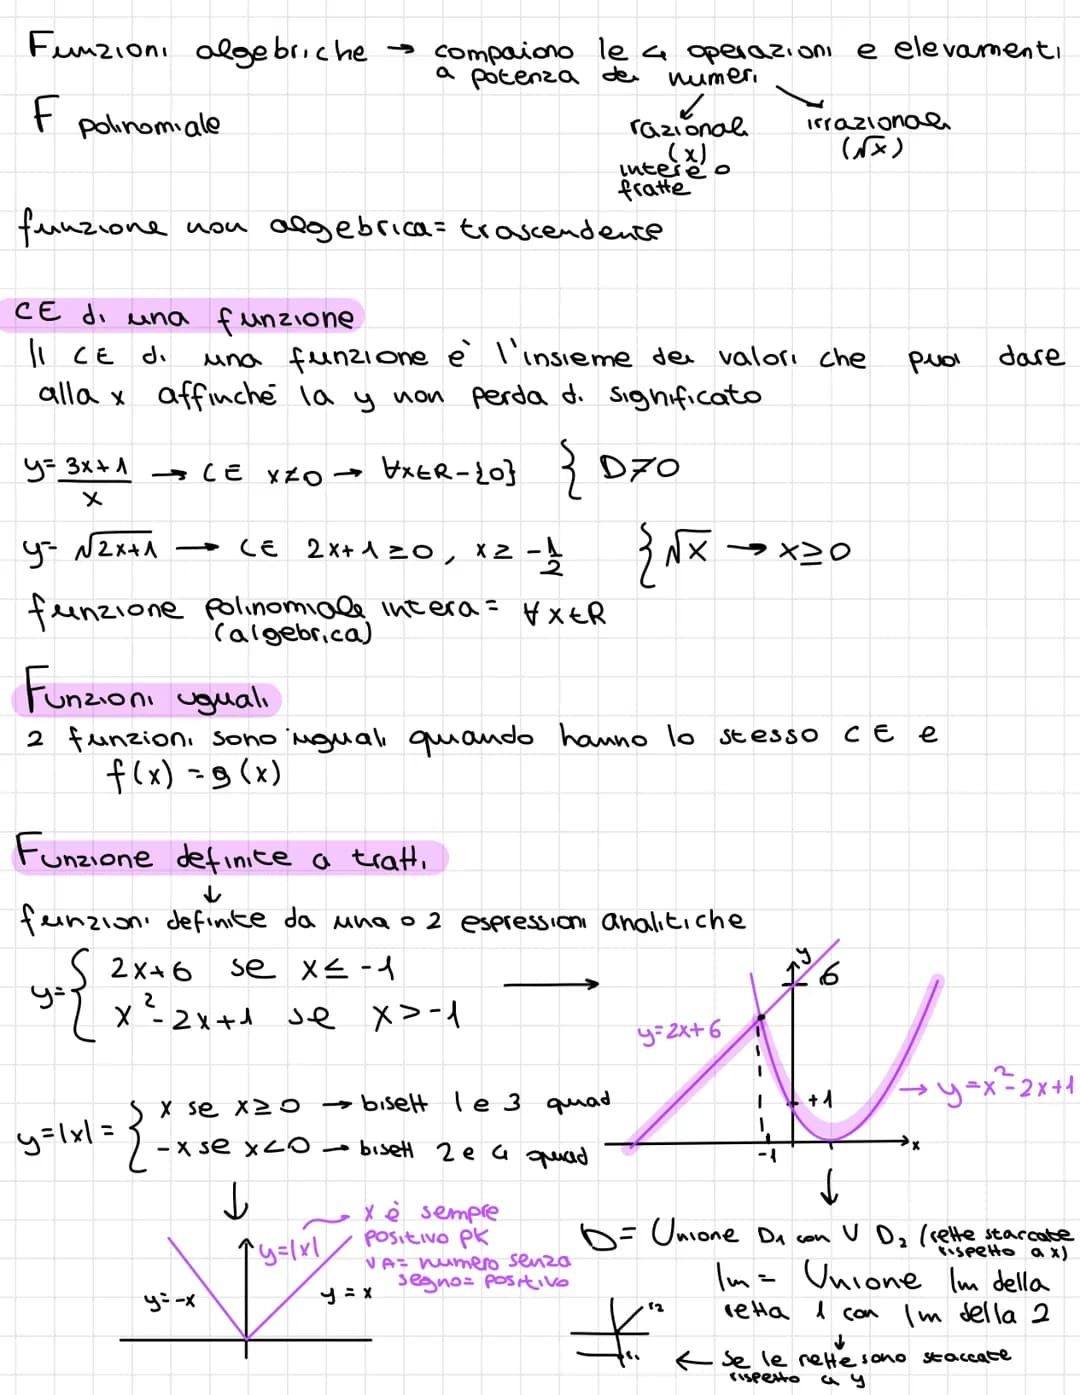 Funzioni algebriche → compaiono le 4 operazioni e elevamenti
a potenza dei numeri
F polinomiale
razionali
(x)
intere o
fratte
irrazionali
(√x)
funzione non algebrica = trascendente
CE di una funzione
Il CE di una funzione è l'insieme dei valori che puoi dare
alla x affinché la y non perda di significato
y= 3x+1/x → CE x≠0 → ∀x∈R-{0} { D≠0
y= √2x+1 → CE 2x+1≥0, x≥ -1/2 { √x → x≥0
funzione polinomiale intera = ∀x∈R
(algebrica)
Funzioni uguali
2 funzioni sono uguali quando hanno lo stesso CE e
f(x) = g(x)
Funzione definite a tratti
↓
funzioni definite da una o 2 espressioni analitiche
y= { 2x+6 se x≤-1 →
x²-2x+1 se x>-1
y
6
y=2x+6
+1
→ y=x²-2x+1
-1
x
y=|x|= { x se x≥0 → bisett 1 e 3 quad
-x se x<0 → bisett 2 e 4 quad
↓
x è sempre
positivo pk
VA= numero senza
segno= positivo
y=|x|
y=-x
y=x
↓
D= Unione D1 con U D2 (rette staccate
rispetto a x)
Im= Unione Im della
retta 1 con Im della 2
↓
← Se le rette sono staccate
rispetto a y
r2
r1